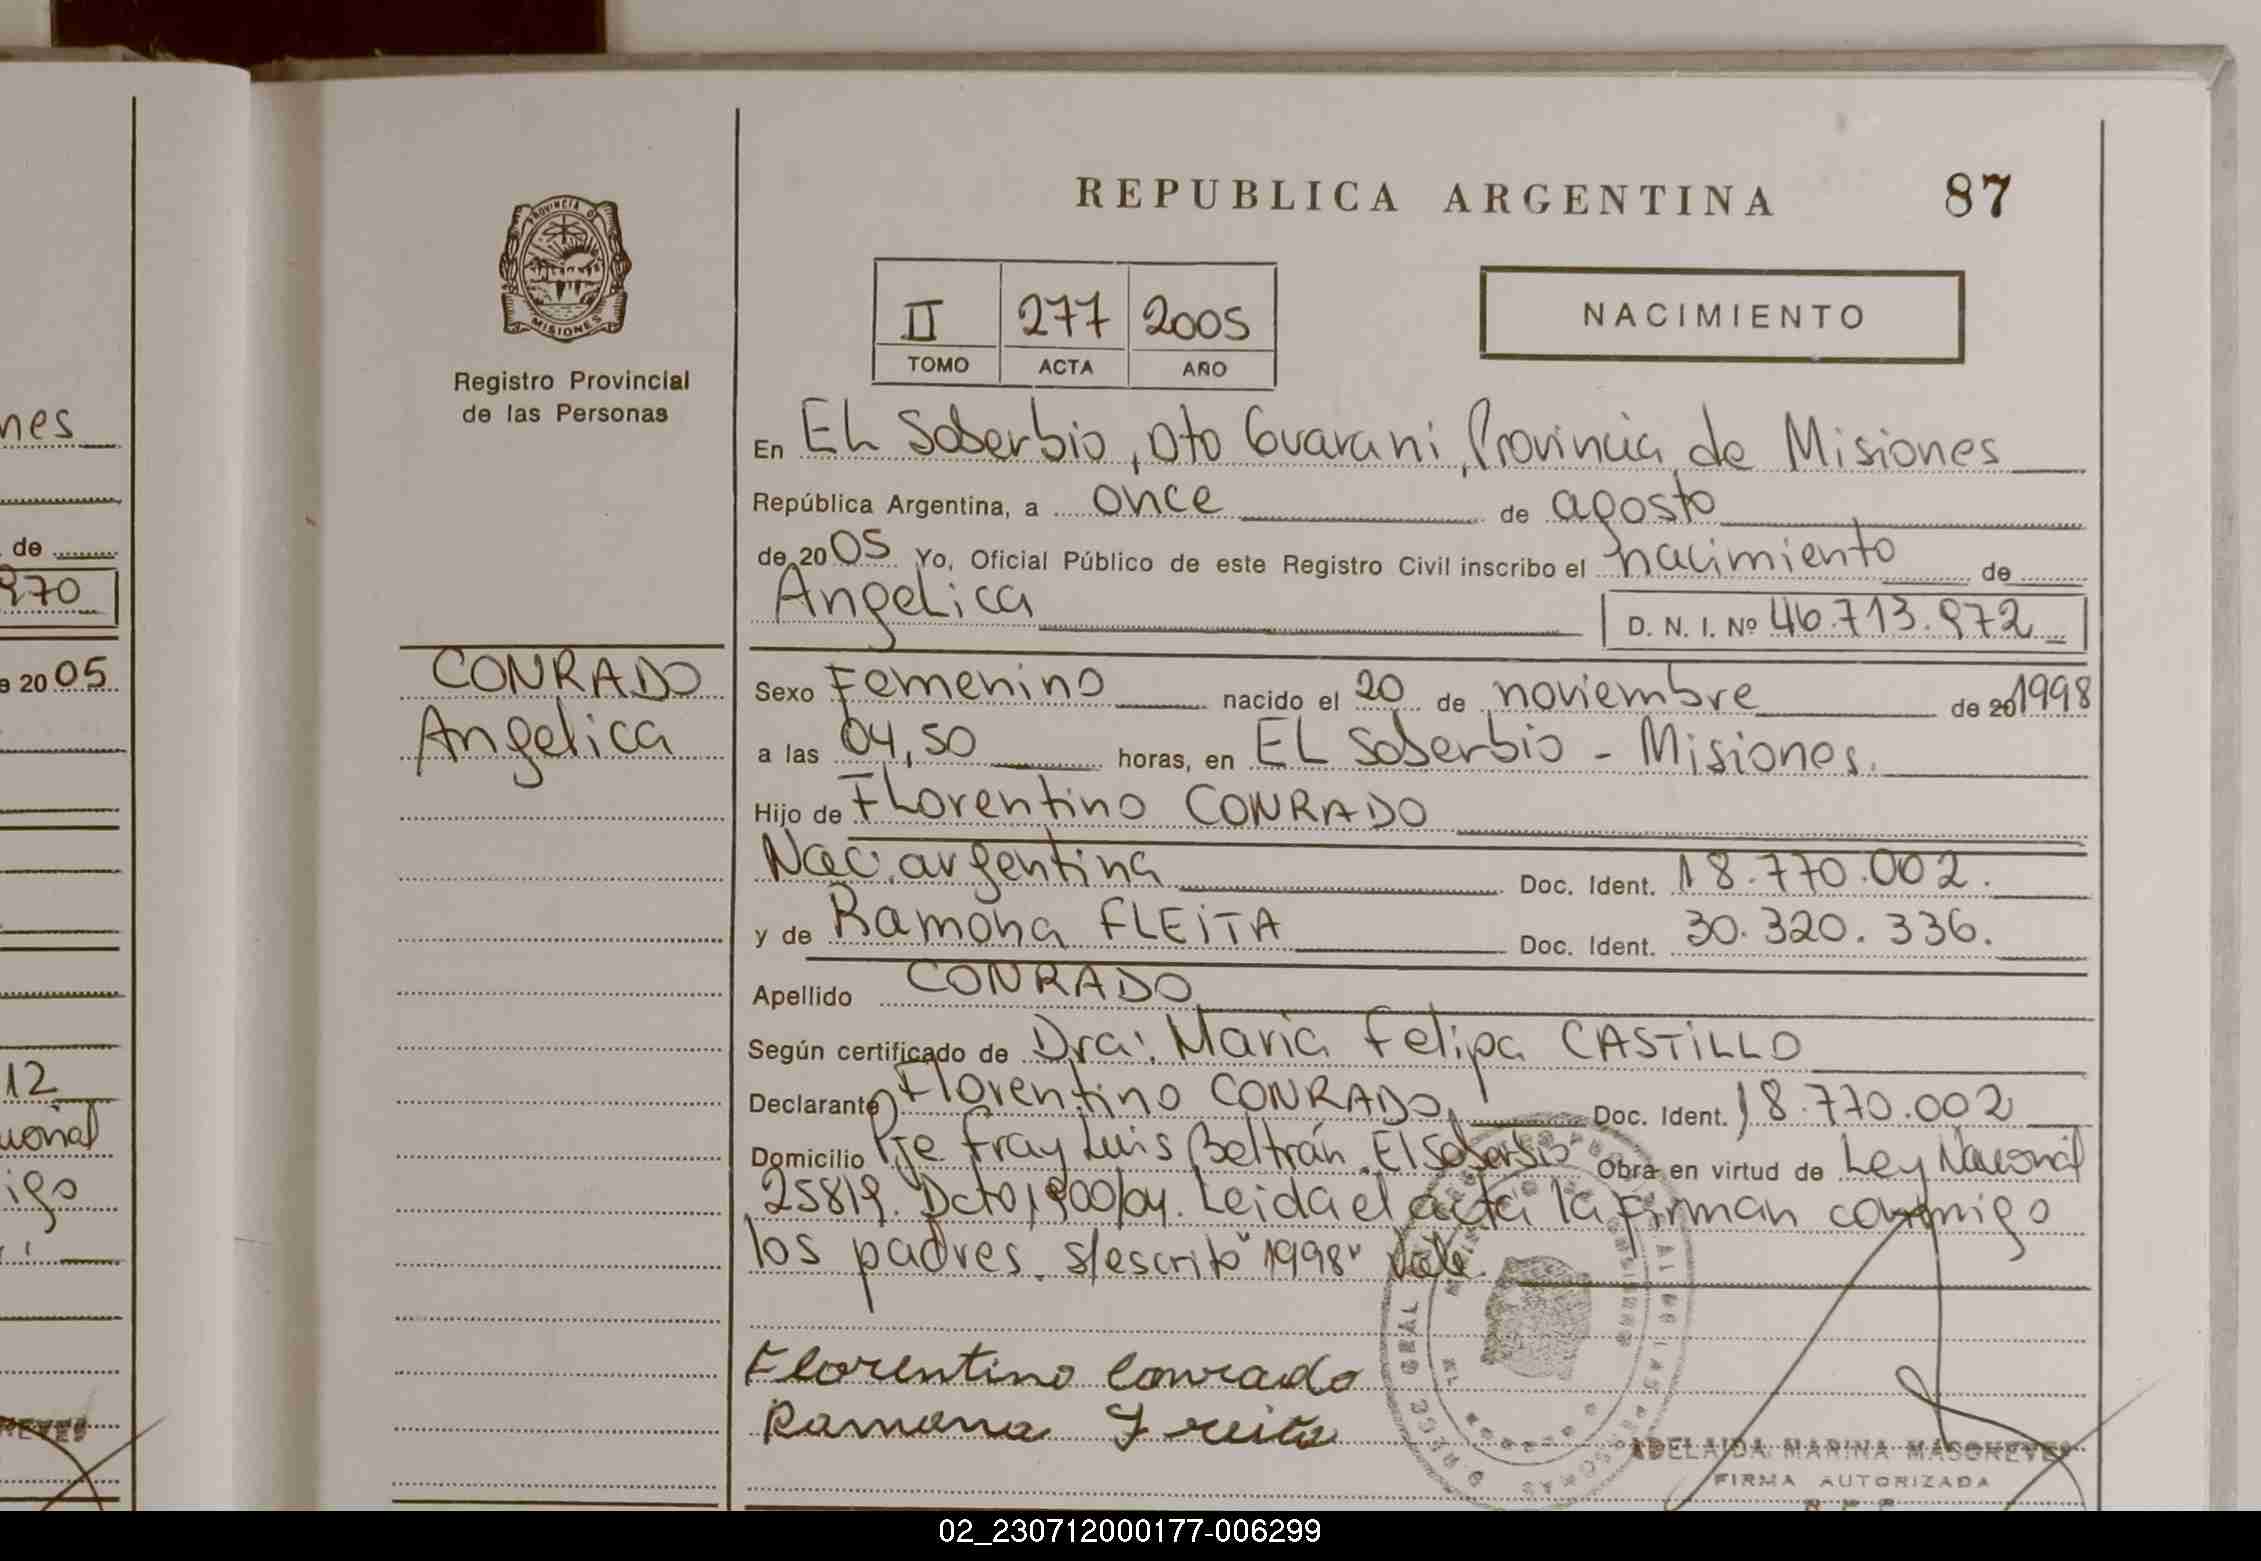 REPUBLICA ARGENTINA 87
PROVINCIA DE
MISIONES
Registro Provincial
de las Personas
II 277 2005
TOMO ACTA AÑO
NACIMIENTO
En EL Soberbio, Dto Guarani, Provincia de Misiones
República Argentina, a once de agosto
de 2005 Yo, Oficial Público de este Registro Civil inscribo el nacimiento de
Angelica D. N. I. Nº 46.713.972
CONRADO
Angelica
Sexo Femenino nacido el 20 de noviembre de 20 1998
a las 04,50 horas, en EL Soberbio - Misiones.
Hijo de Florentino CONRADO
Nac. argentina Doc. Ident. 18.770.002.
y de Ramona FLEITA Doc. Ident. 30.320.336.
Apellido CONRADO
Según certificado de Dra. Maria Felipa CASTILLO
Declarante Florentino CONRADO, Doc. Ident. 18.770.002
Domicilio Pje Fray Luis Beltrán. El Soberbio Obra en virtud de Ley Nacional
25819. Dcto 1900/04. Leida el acta la firman conmigo
los padres. s/escrito "1998" Vale.
Florentino Conrado
Ramona Freita
ADELAIDA MARINA
FIRMA AUTORIZADA
nes
de
970
e 20 05
12
cional
igo
02_230712000177-006299